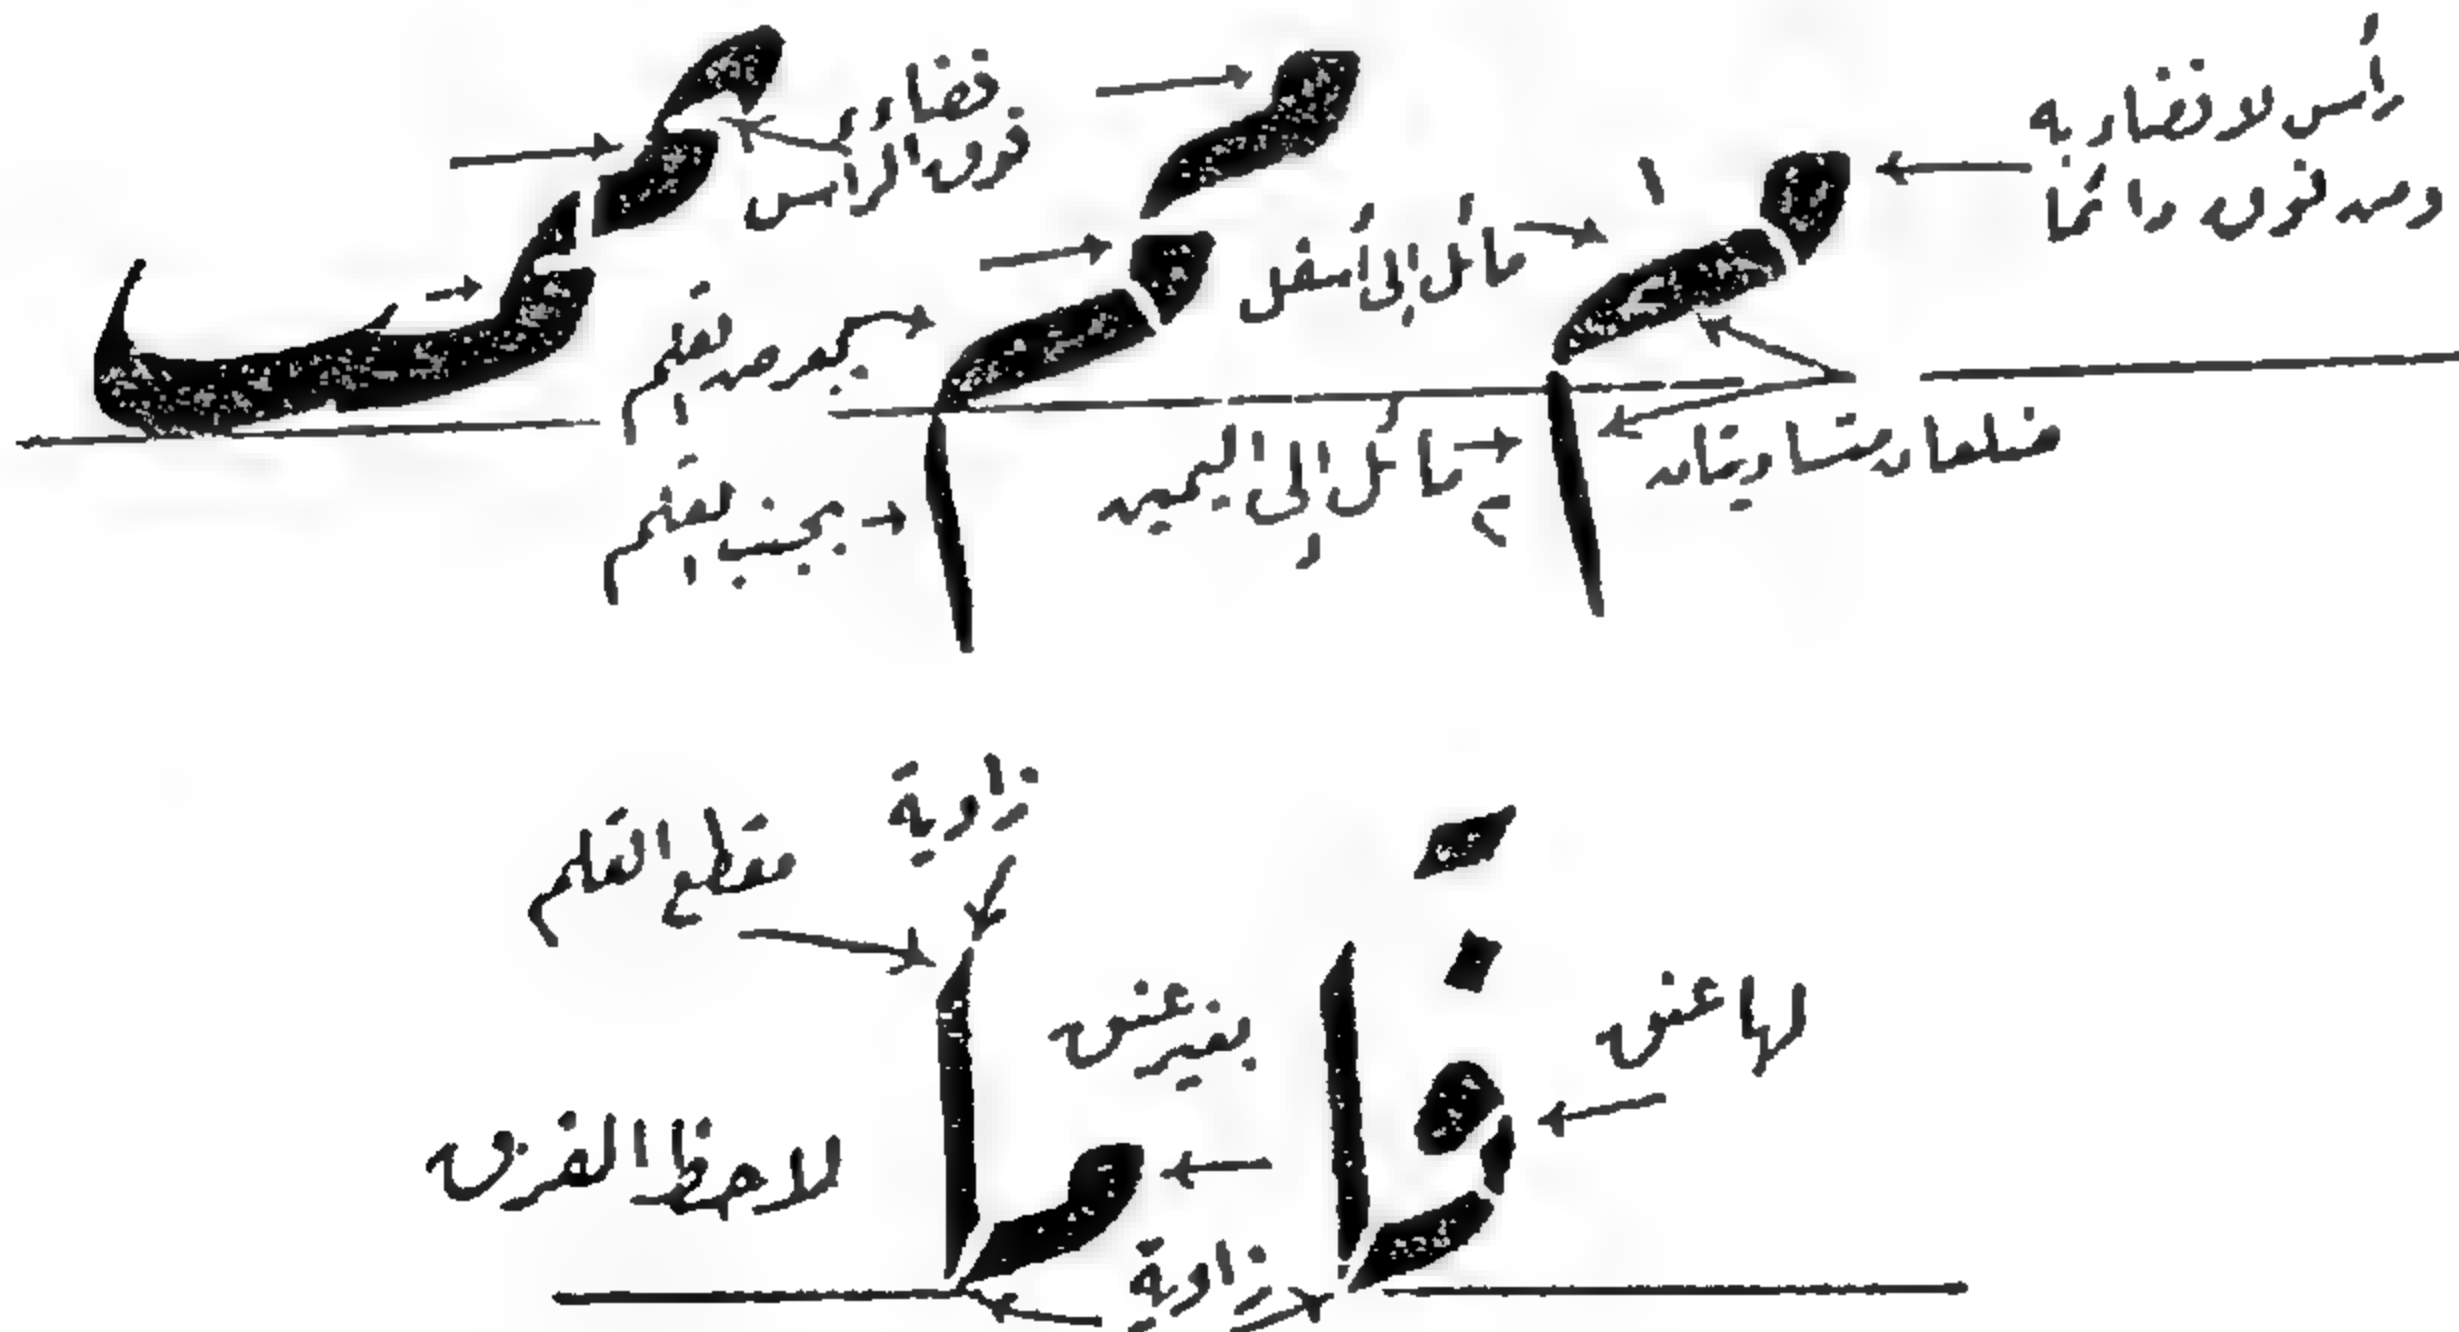 رأس لا فضاء به
ومن فوق دائماً
فضاء
فوق الرأس
١ مائل إلى أسفل
بعرض القلم
ضلعان متساويتان
٢ مائل إلى اليمين
بجنب القلم
زاوية
مقطع القلم
لها عنق
بغير عنق
لاحظ الفرق
زاوية